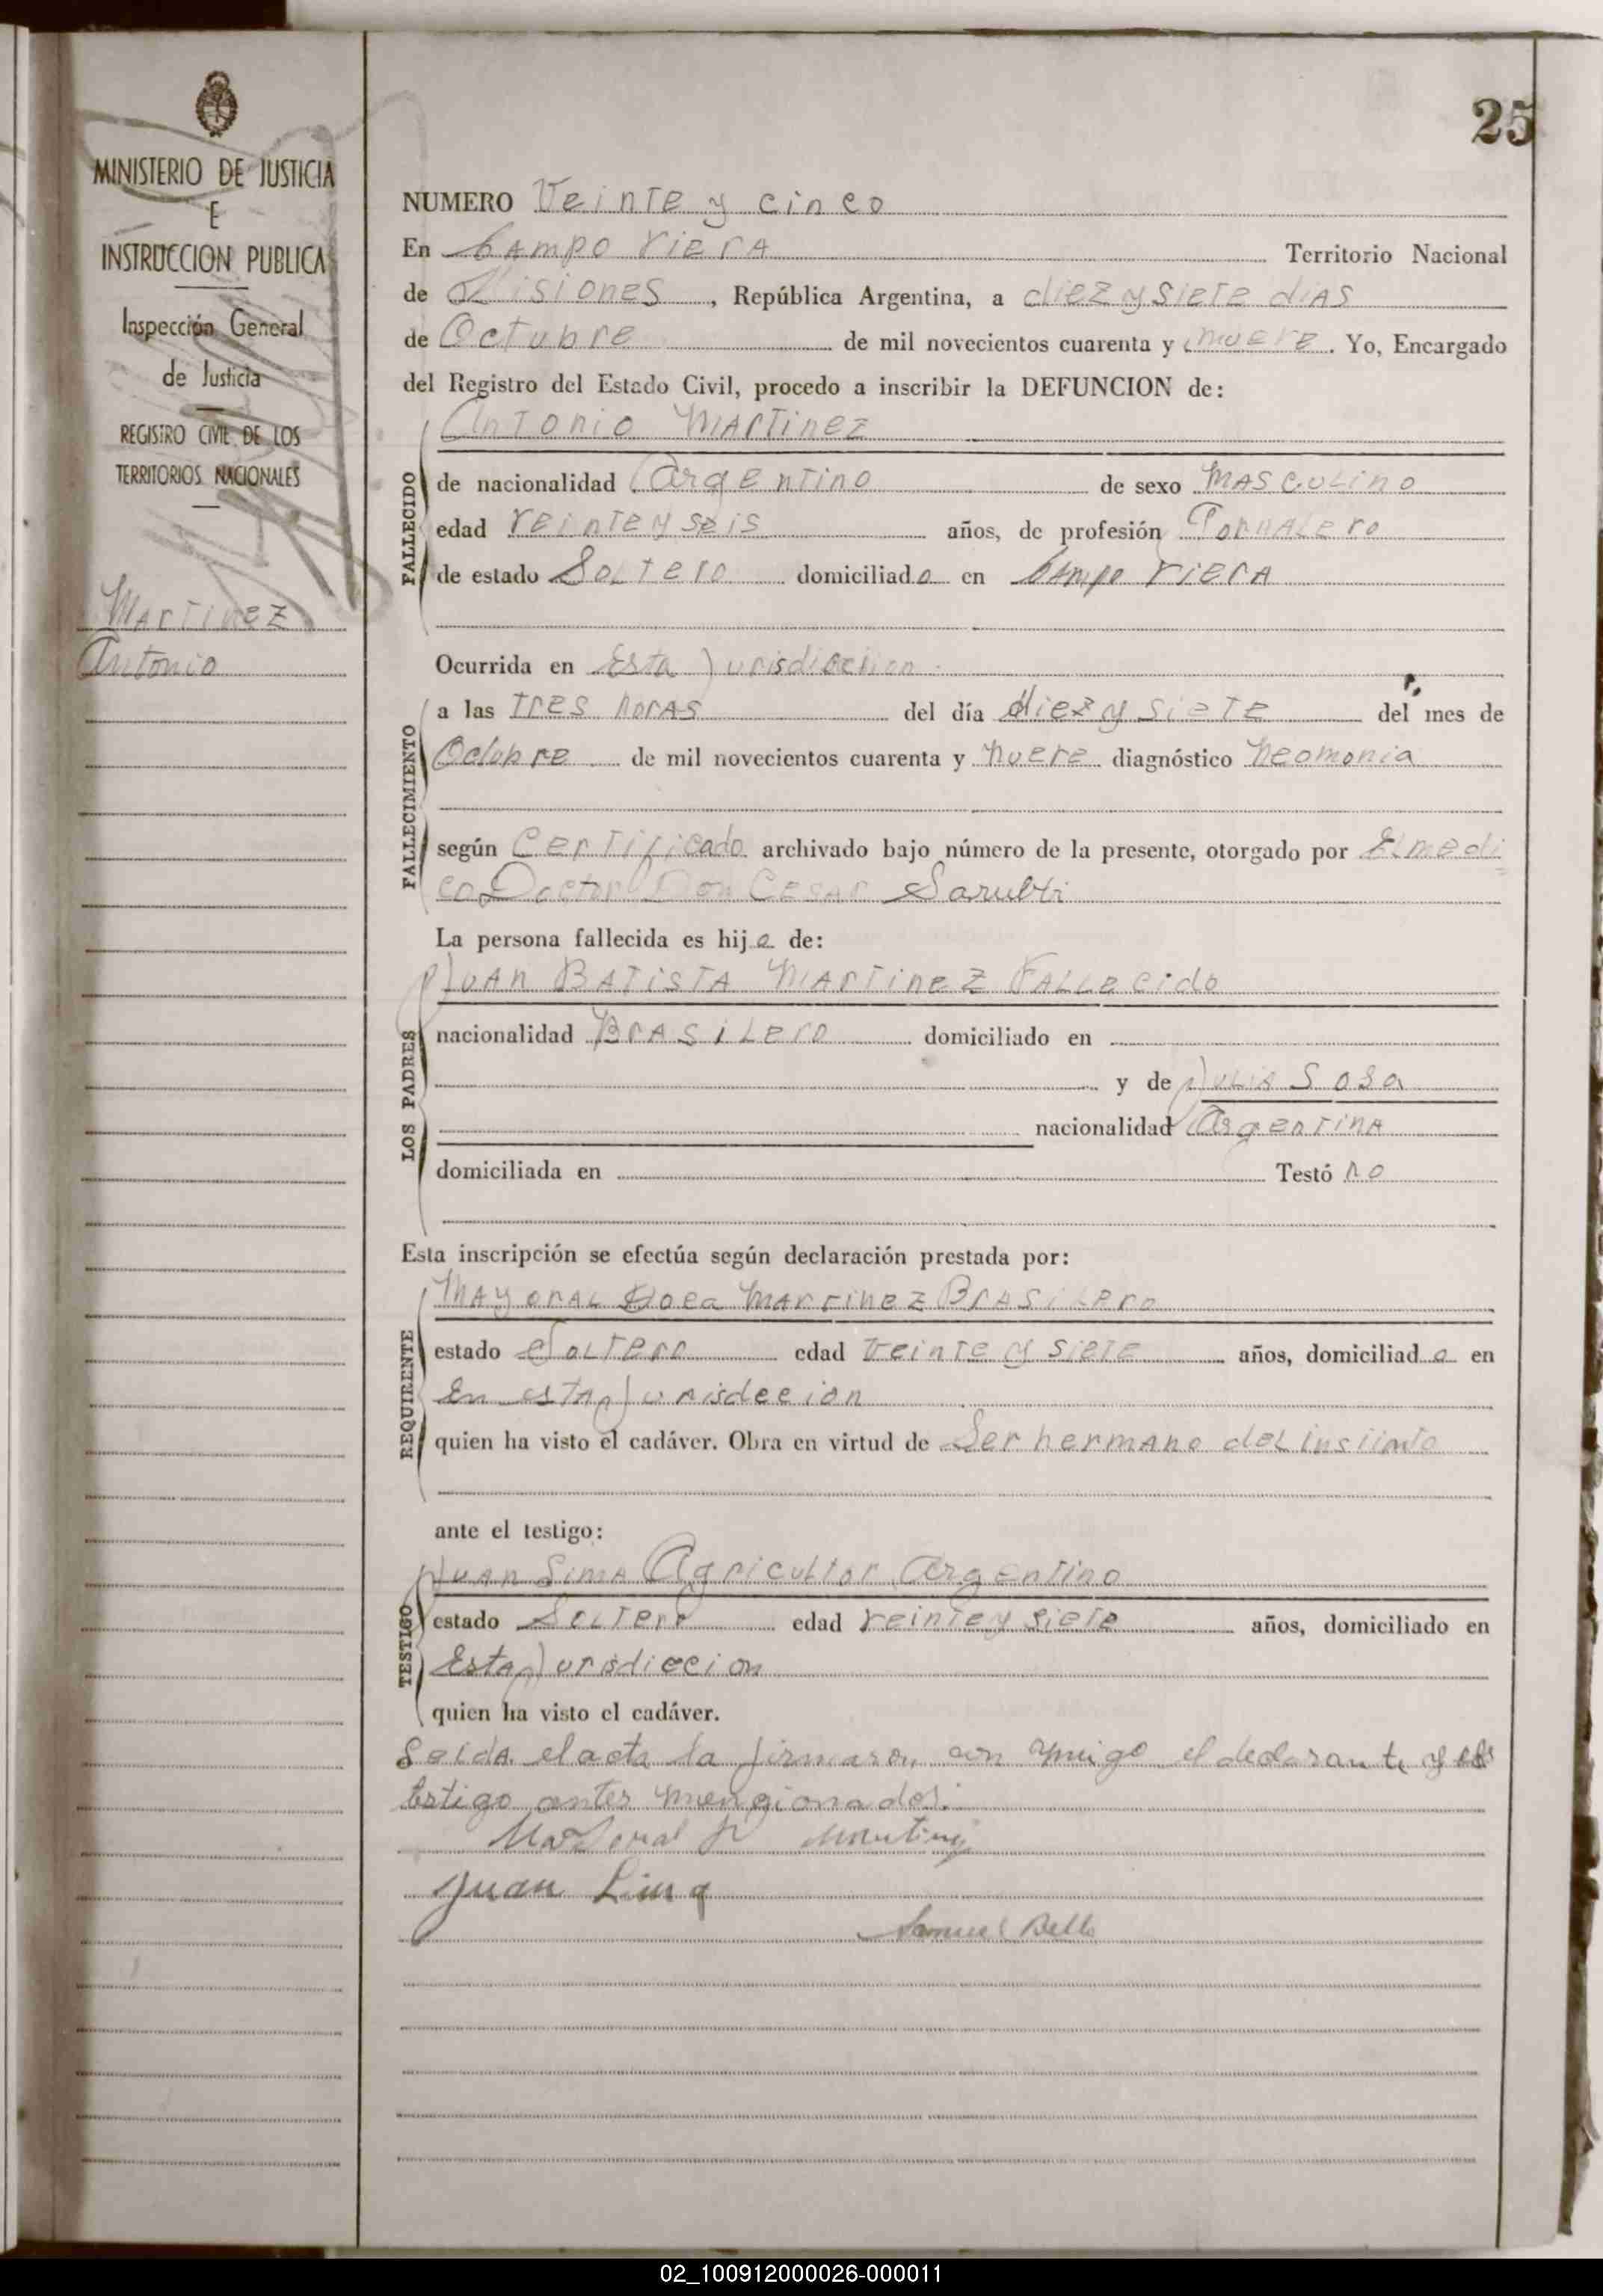 25
MINISTERIO DE JUSTICIA
E
INSTRUCCION PUBLICA
Inspección General
de Justicia
REGISTRO CIVIL DE LOS
TERRITORIOS NACIONALES
Martinez
Antonio
NUMERO Veinte y cinco
En Campo Viera Territorio Nacional
de Misiones, República Argentina, a diez y siete dias
de Octubre de mil novecientos cuarenta y nueve. Yo, Encargado
del Registro del Estado Civil, procedo a inscribir la DEFUNCION de:
FALLECIDO
Antonio Martinez
de nacionalidad Argentino de sexo Masculino
edad veinte y seis años, de profesión Jornalero
de estado Soltero domiciliado en Campo Viera
FALLECIMIENTO
Ocurrida en Esta Jurisdiccion
a las tres horas del día diez y siete del mes de
Octubre de mil novecientos cuarenta y nueve diagnóstico Neomonia
según Certificado archivado bajo número de la presente, otorgado por El medi
co Doctor Don Cesar Sarubbi
LOS PADRES
La persona fallecida es hijo de:
Juan Batista Martinez Fallecido
nacionalidad Brasilero domiciliado en
y de Julia Sosa
nacionalidad Argentina
domiciliada en Testó no
Esta inscripción se efectúa según declaración prestada por:
REQUIRENTE
Mayoral Martinez Brasilero
estado Soltero edad veinte y siete años, domiciliado en
En esta Jurisdecion
quien ha visto el cadáver. Obra en virtud de Ser hermano del
ante el testigo:
TESTIGO
Juan Lima Agricultor Argentino
estado Soltero edad veinte y siete años, domiciliado en
Esta Jurisdiccion
quien ha visto el cadáver.
Leida el acta la firmaron con migo el declarante y el
testigo antes mengionados.
Martinez
Juan Lima
Samuel Bello
02_100912000026-000011